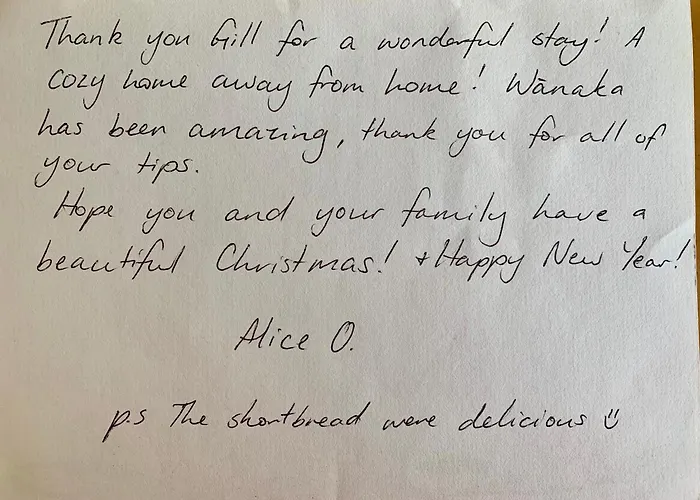 Thank you Gill for a wonderful stay! A
cozy home away from home! Wānaka
has been amazing, thank you for all of
your tips.
Hope you and your family have a
beautiful Christmas! + Happy New Year!
Alice O.
p.s The shortbread were delicious ☺